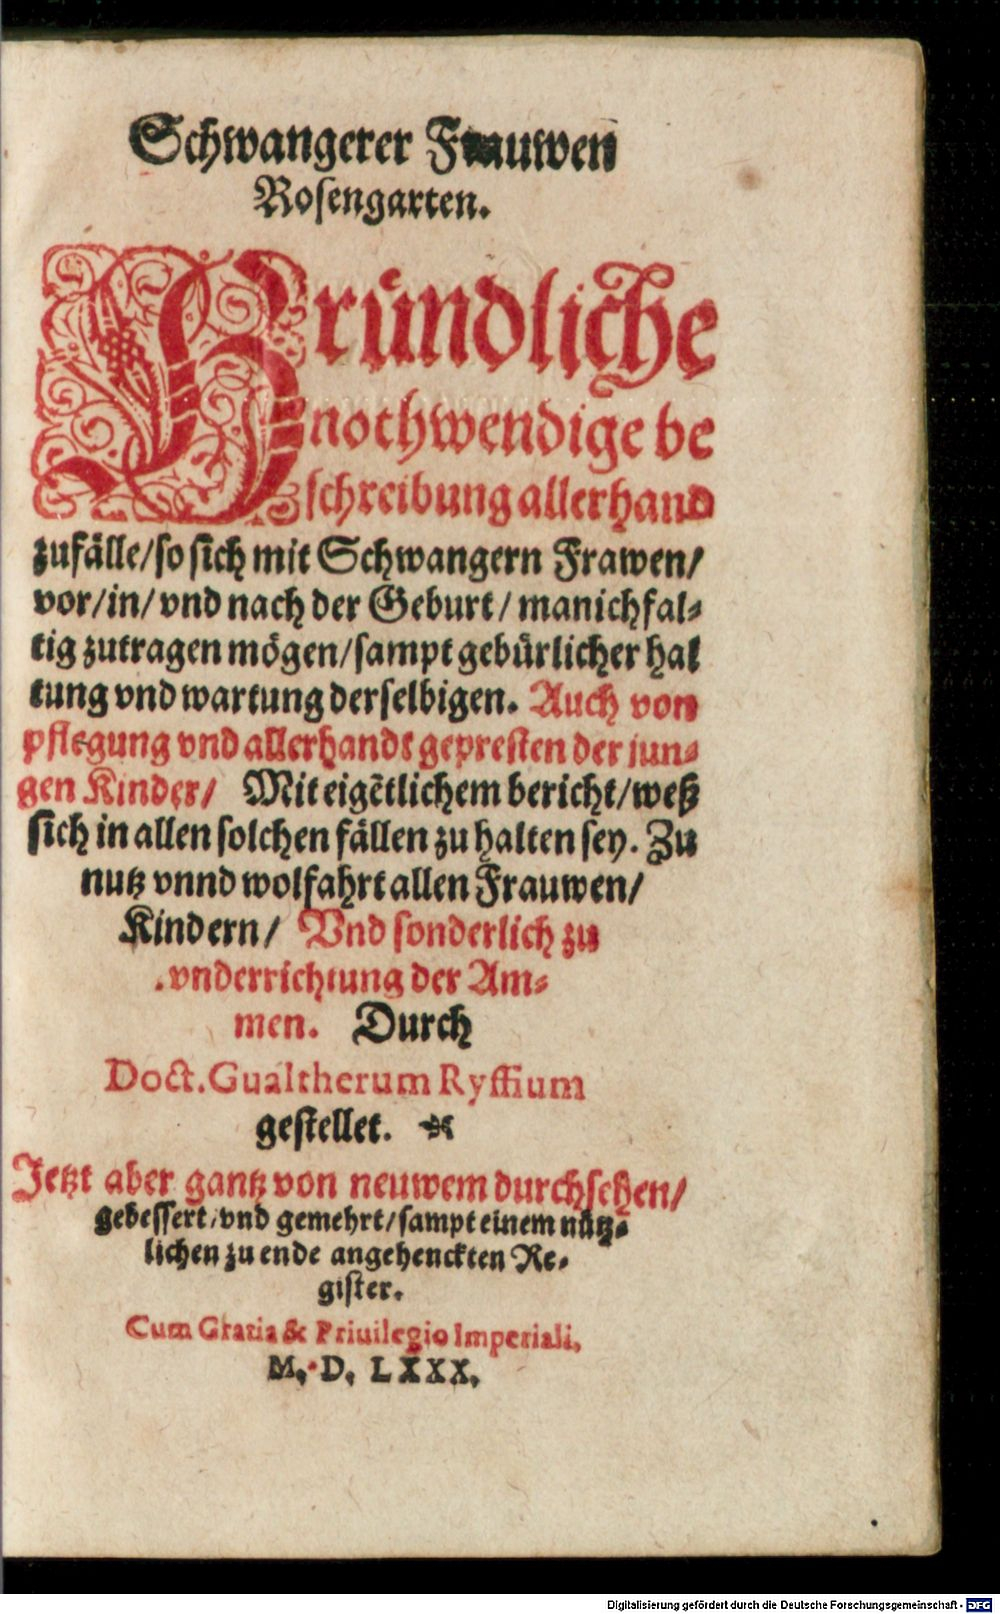 Schwangerer Frauwen
Rosengarten.
Gründliche
nothwendige be
schreibung allerhand
zufälle/so sich mit Schwangern Frawen/
vor/in/vnd nach der Geburt/manichfal-
tig zutragen mögen/sampt gebürlicher hal
tung vnd wartung derselbigen. Auch von
pflegung vnd allerhandt gepresten der jun-
gen Kinder/ Mit eigẽtlichem bericht/weß
sich in allen solchen fällen zu halten sey. Zu
nutz vnnd wolfahrt allen Frauwen/
Kindern/ Vnd sonderlich zu
vnderrichtung der Am-
men. Durch
Doct. Gualtherum Ryffium
gestellet.
Jetzt aber gantz von neuwem durchsehen/
gebessert/vnd gemehrt/sampt einem nütz-
lichen zu ende angehenckten Re-
gister.
Cum Gratia & Priuilegio Imperiali.
M. D. LXXX.
Digitalisierung gefördert durch die Deutsche Forschungsgemeinschaft - DFG